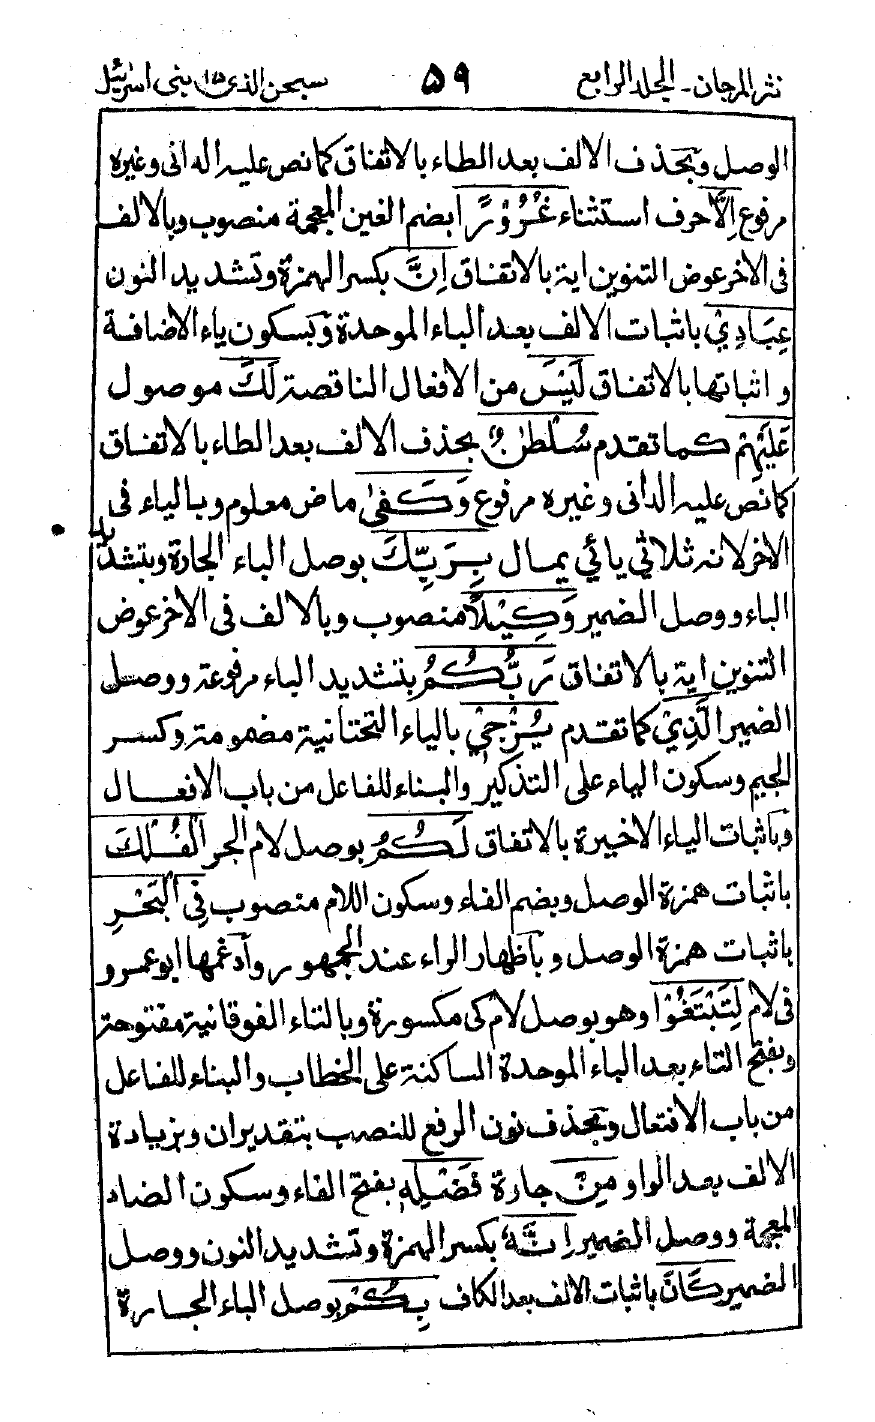 نثر المرجان - المجلد الرابع ۵۹ سبحن الذی ۱۵ بنی اسرٰئیل
الوصل وبحذف الالف بعد الطاء بالاتفاق كما نص عليه الدانى وغيره
مرفوع اِلَّا حرف استثناء غُرُوْرًا بضم الغين المعجمة منصوب وبالالف
فى الاخر عوض التنوين اية بالاتفاق اِنَّ بكسر الهمزة وتشديد النون
عِبَادِيْ باثبات الالف بعد الباء الموحدة وبسكون ياء الاضافة
و اثباتها بالاتفاق لَيْسَ من الافعال الناقصة لَكَ موصول
عَلَيْهِمْ كما تقدم سُلْطٰنٌ بحذف الالف بعد الطاء بالاتفاق
كما نص عليه الدانى وغيره مرفوع وَكَفٰى ماض معلوم وبالياء فى
الاخر لانه ثلاثي يائي يمال بِرَبِّكَ بوصل الباء الجارة وبتشديد
الباء ووصل الضمير وَكِيْلًا منصوب وبالالف فى الاخر عوض
التنوين اية بالاتفاق رَبُّكُمُ بتشديد الباء مرفوعة ووصل
الضمير الَّذِيْ كما تقدم يُزْجِيْ بالياء التحتانية مضمومة وكسر
الجيم وسكون الهاء على التذكير والبناء للفاعل من باب الافعال
وباثبات الياء الاخيرة بالاتفاق لَكُمُ بوصل لام الجر الْفُلْكَ
باثبات همزة الوصل وبضم الفاء وسكون اللام منصوب فِى الْبَحْرِ
باثبات همزة الوصل وباظهار الراء عند الجمهور وأدغمها ابو عمرو
فى لام لِتَبْتَغُوْا وهو بوصل لام كى مكسورة وبالتاء الفوقانية مفتوحة
وبفتح التاء بعد الباء الموحدة الساكنة على الخطاب والبناء للفاعل
من باب الافتعال وبحذف نون الرفع للنصب بتقدير ان وبزيادة
الالف بعد الواو مِنْ جارة فَضْلِهٖ بفتح الفاء وسكون الضاد
المعجمة ووصل الضمير اِنَّهٗ بكسر الهمزة وتشديد النون ووصل
الضمير كَانَ باثبات الالف بعد الكاف بِكُمْ بوصل الباء الجارة